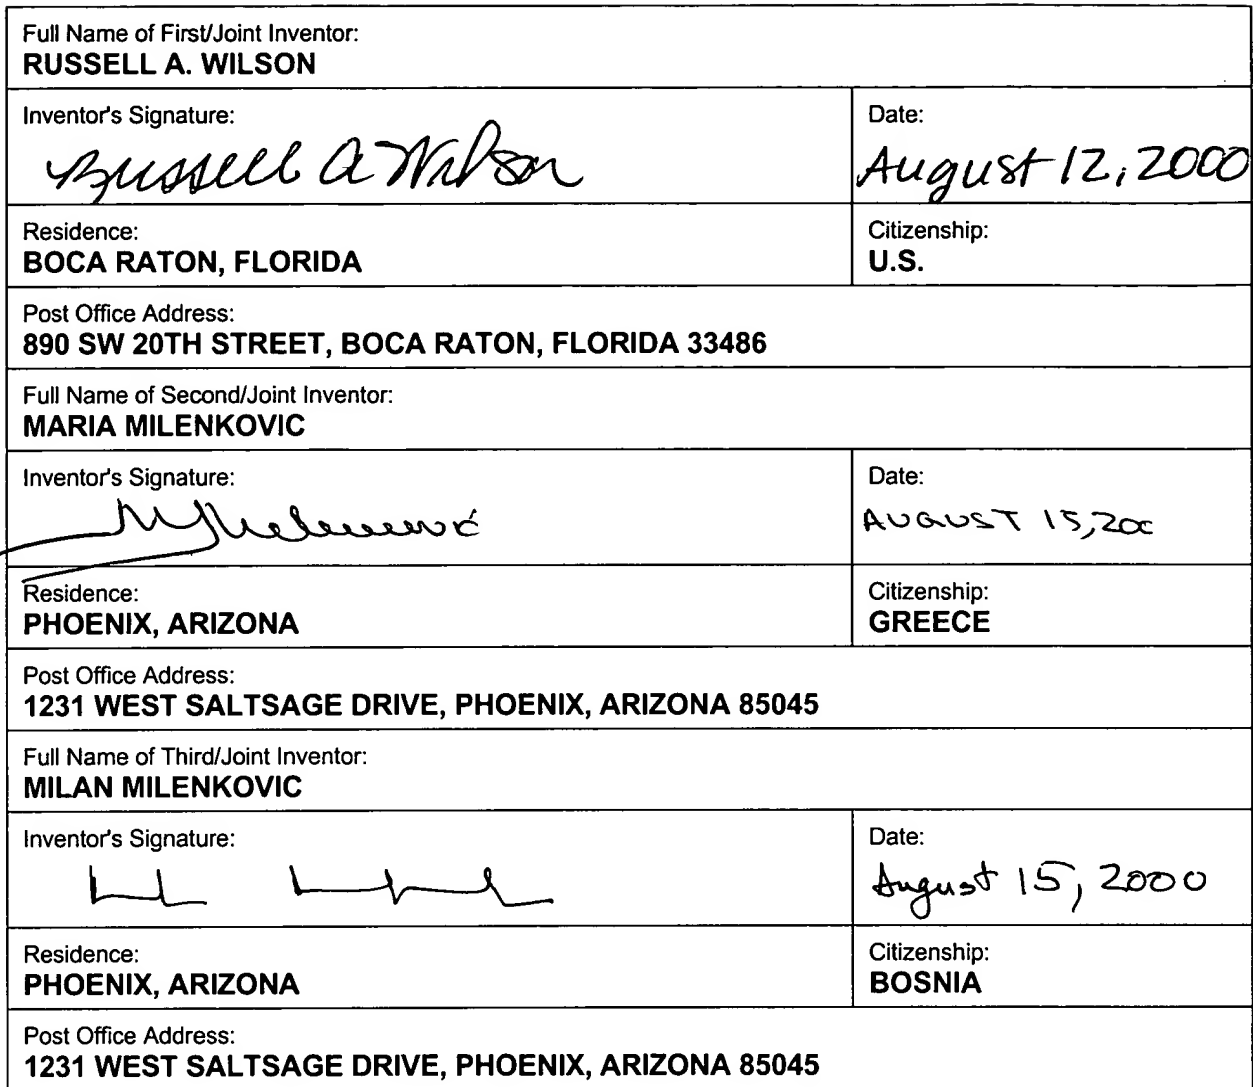 Full Name of First/Joint Inventor:
RUSSELL A. WILSON
Inventor's Signature:
Russell A Wilson
Date:
August 12, 2000
Residence:
BOCA RATON, FLORIDA
Citizenship:
U.S.
Post Office Address:
890 SW 20TH STREET, BOCA RATON, FLORIDA 33486
Full Name of Second/Joint Inventor:
MARIA MILENKOVIC
Inventor's Signature:
Date:
AUGUST 15, 200
Residence:
PHOENIX, ARIZONA
Citizenship:
GREECE
Post Office Address:
1231 WEST SALTSAGE DRIVE, PHOENIX, ARIZONA 85045
Full Name of Third/Joint Inventor:
MILAN MILENKOVIC
Inventor's Signature:
Date:
August 15, 2000
Residence:
PHOENIX, ARIZONA
Citizenship:
BOSNIA
Post Office Address:
1231 WEST SALTSAGE DRIVE, PHOENIX, ARIZONA 85045